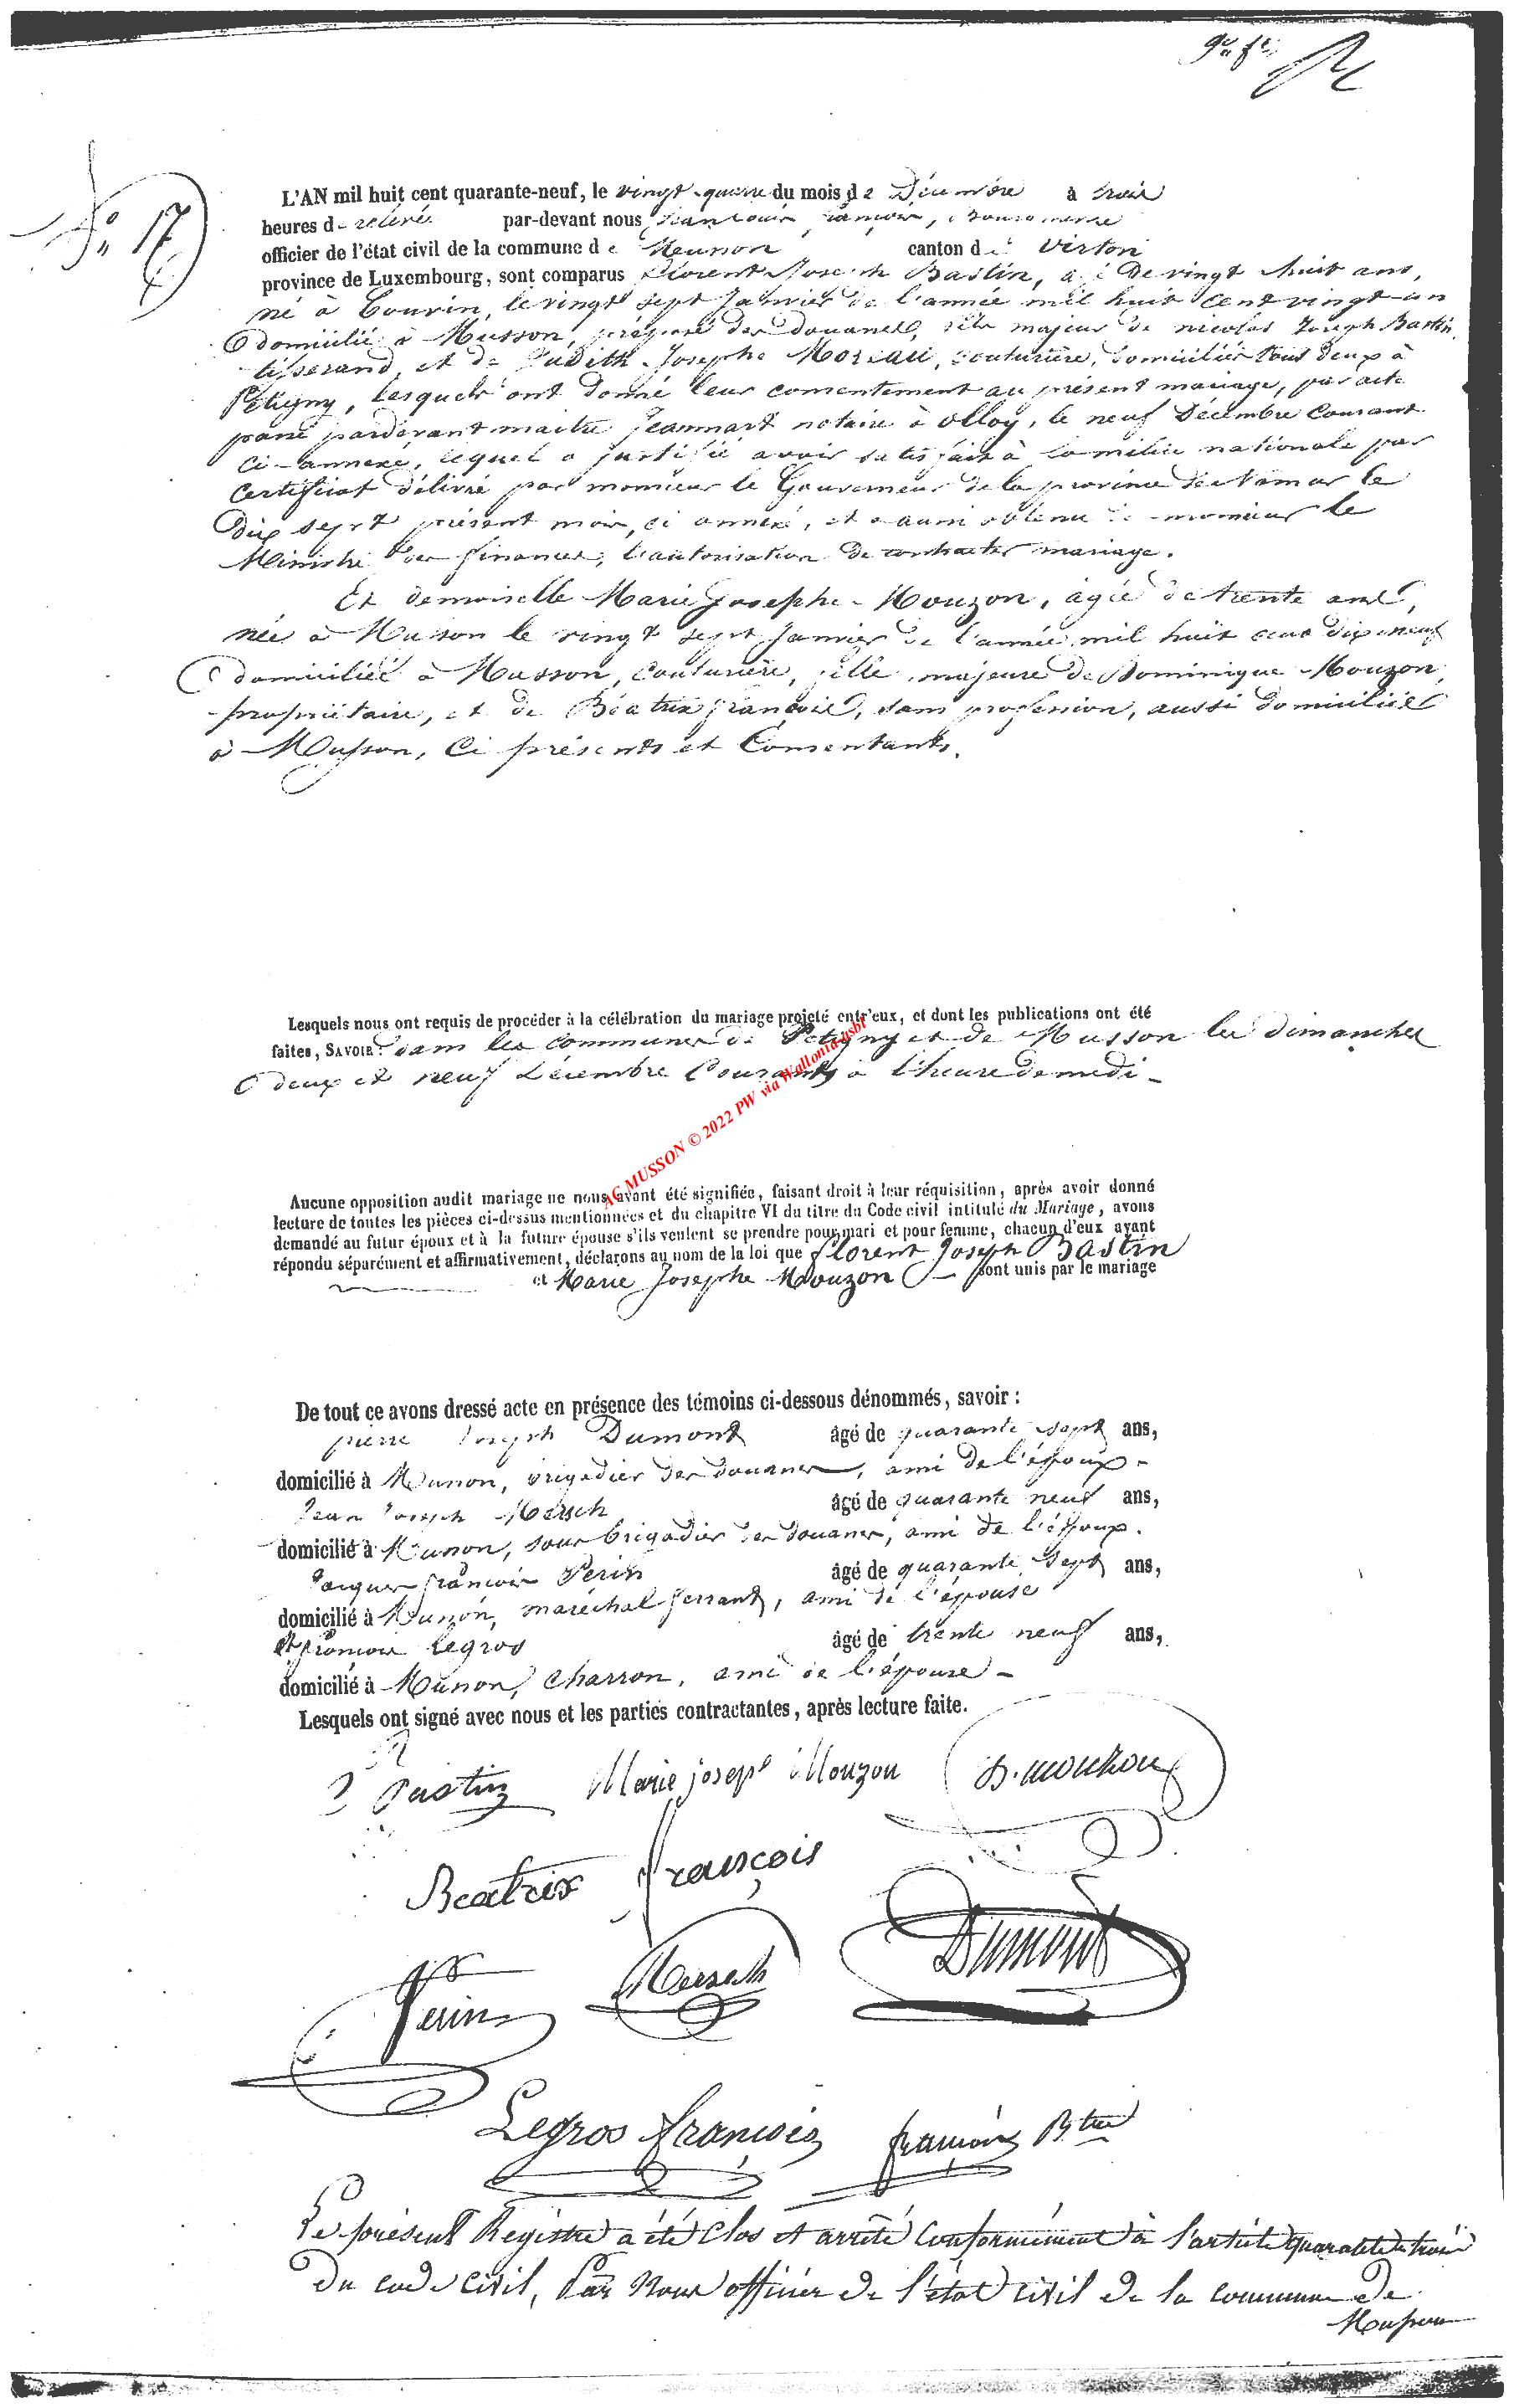 9e fe
No 17
L'AN mil huit cent quarante-neuf, le vingt-quatre du mois de Décembre à trois
heures de relevée par-devant nous Jean Louis François, Bourgmestre
officier de l'état civil de la commune de Musson canton de Virton
province de Luxembourg, sont comparus Florent Joseph Bastin, agé de vingt huit ans,
né à Couvin, le vingt sept Janvier de l'année mil huit cent vingt-un
domicilié à Musson, préposé des douanes, fils majeur de nicolas Joseph Bastin,
tisserand, et de Judith Josephe Moreau, couturière, domiciliés tous deux à
Pétigny, lesquels ont donné leur consentement au présent mariage, par acte
passé pardevant maitre Jeanmart notaire à olloy, le neuf Décembre Courant
ci-annexé, lequel a justifié avoir satisfait à la milice nationale par
Certificat délivré par monsieur le Gouverneur de la province de Namur le
Dix sept présent mois, ci annexé, et a aussi obtenu de monsieur le
Ministre des finances, l'autorisation de contracter mariage.
Et demoiselle Marie Josephe Mouzon, agée de trente ans,
née à Musson le vingt sept Janvier de l'année mil huit cent dix neuf
domiciliée à Musson, couturière, fille majeure de Dominique Mouzon,
propriétaire, et de Béatrix françois, sans profession, aussi domiciliés
à Musson, Ci présents et Consentants.
Lesquels nous ont requis de procéder à la célébration du mariage projeté entr'eux, et dont les publications ont été
faites, SAVOIR: dans les communes de Petigny et de Musson les dimanches
deux et neuf Décembre Courants à l'heure de midi -
AC MUSSON © 2022 PW via Wallonia asbl
Aucune opposition audit mariage ne nous ayant été signifiée, faisant droit à leur réquisition, après avoir donné
lecture de toutes les pièces ci-dessus mentionnées et du chapitre VI du titre du Code civil intitulé du Mariage, avons
demandé au futur époux et à la future épouse s'ils veulent se prendre pour mari et pour femme, chacun d'eux ayant
répondu séparément et affirmativement, déclarons au nom de la loi que florent Joseph Bastin
et Marie Josephe Mouzon sont unis par le mariage
De tout ce avons dressé acte en présence des témoins ci-dessous dénommés, savoir :
pierre Joseph Dumont âgé de quarante sept ans,
domicilié à Musson, brigadier des douanes, ami de l'époux -
Jean Joseph Mersch âgé de quarante neuf ans,
domicilié à Musson, sous brigadier des douanes, ami de l'époux.
Jacques françois Perin âgé de quarante sept ans,
domicilié à Musson, maréchal ferrant, ami de l'épouse
et françois Legros âgé de trente neuf ans,
domicilié à Musson, Charron, ami de l'épouse -
Lesquels ont signé avec nous et les parties contractantes, après lecture faite.
Bastin Marie joseph Mouzon D. mouzon
Beatrix françois
Perin Mersch Dumont
Legros françois françois Btre
Le présent Registre a été Clos et arrêté Conformément à l'article quarante trois
du code civil, Par Nous officier de l'état civil de la commune de
Musson